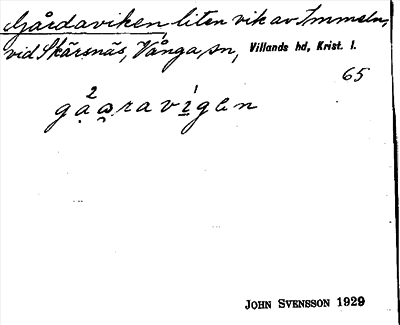 Gårdaviken, liten vik av Immeln,
vid Skärsnäs, Vånga sn, Villands hd, Krist. l.
65
gạ²a̮raví̱gen
JOHN SVENSSON 1929